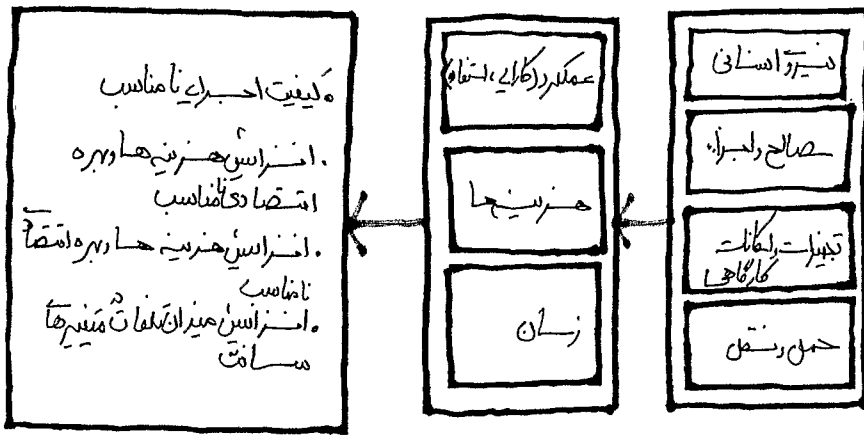 نیروی انسانی
مصالح و اجزاء
تجهیزات و امکانات
کارگاهی
حمل و نقل
عملکرد (کارایی،
هزینه‌ها
زمان
• کیفیت اجرایی نامناسب
• افزایش هزینه ها و بهره
اقتصادی نامناسب
• افزایش هزینه ها و بهره اقتصادی
نامناسب
• افزایش میزان تلفات
ساخت